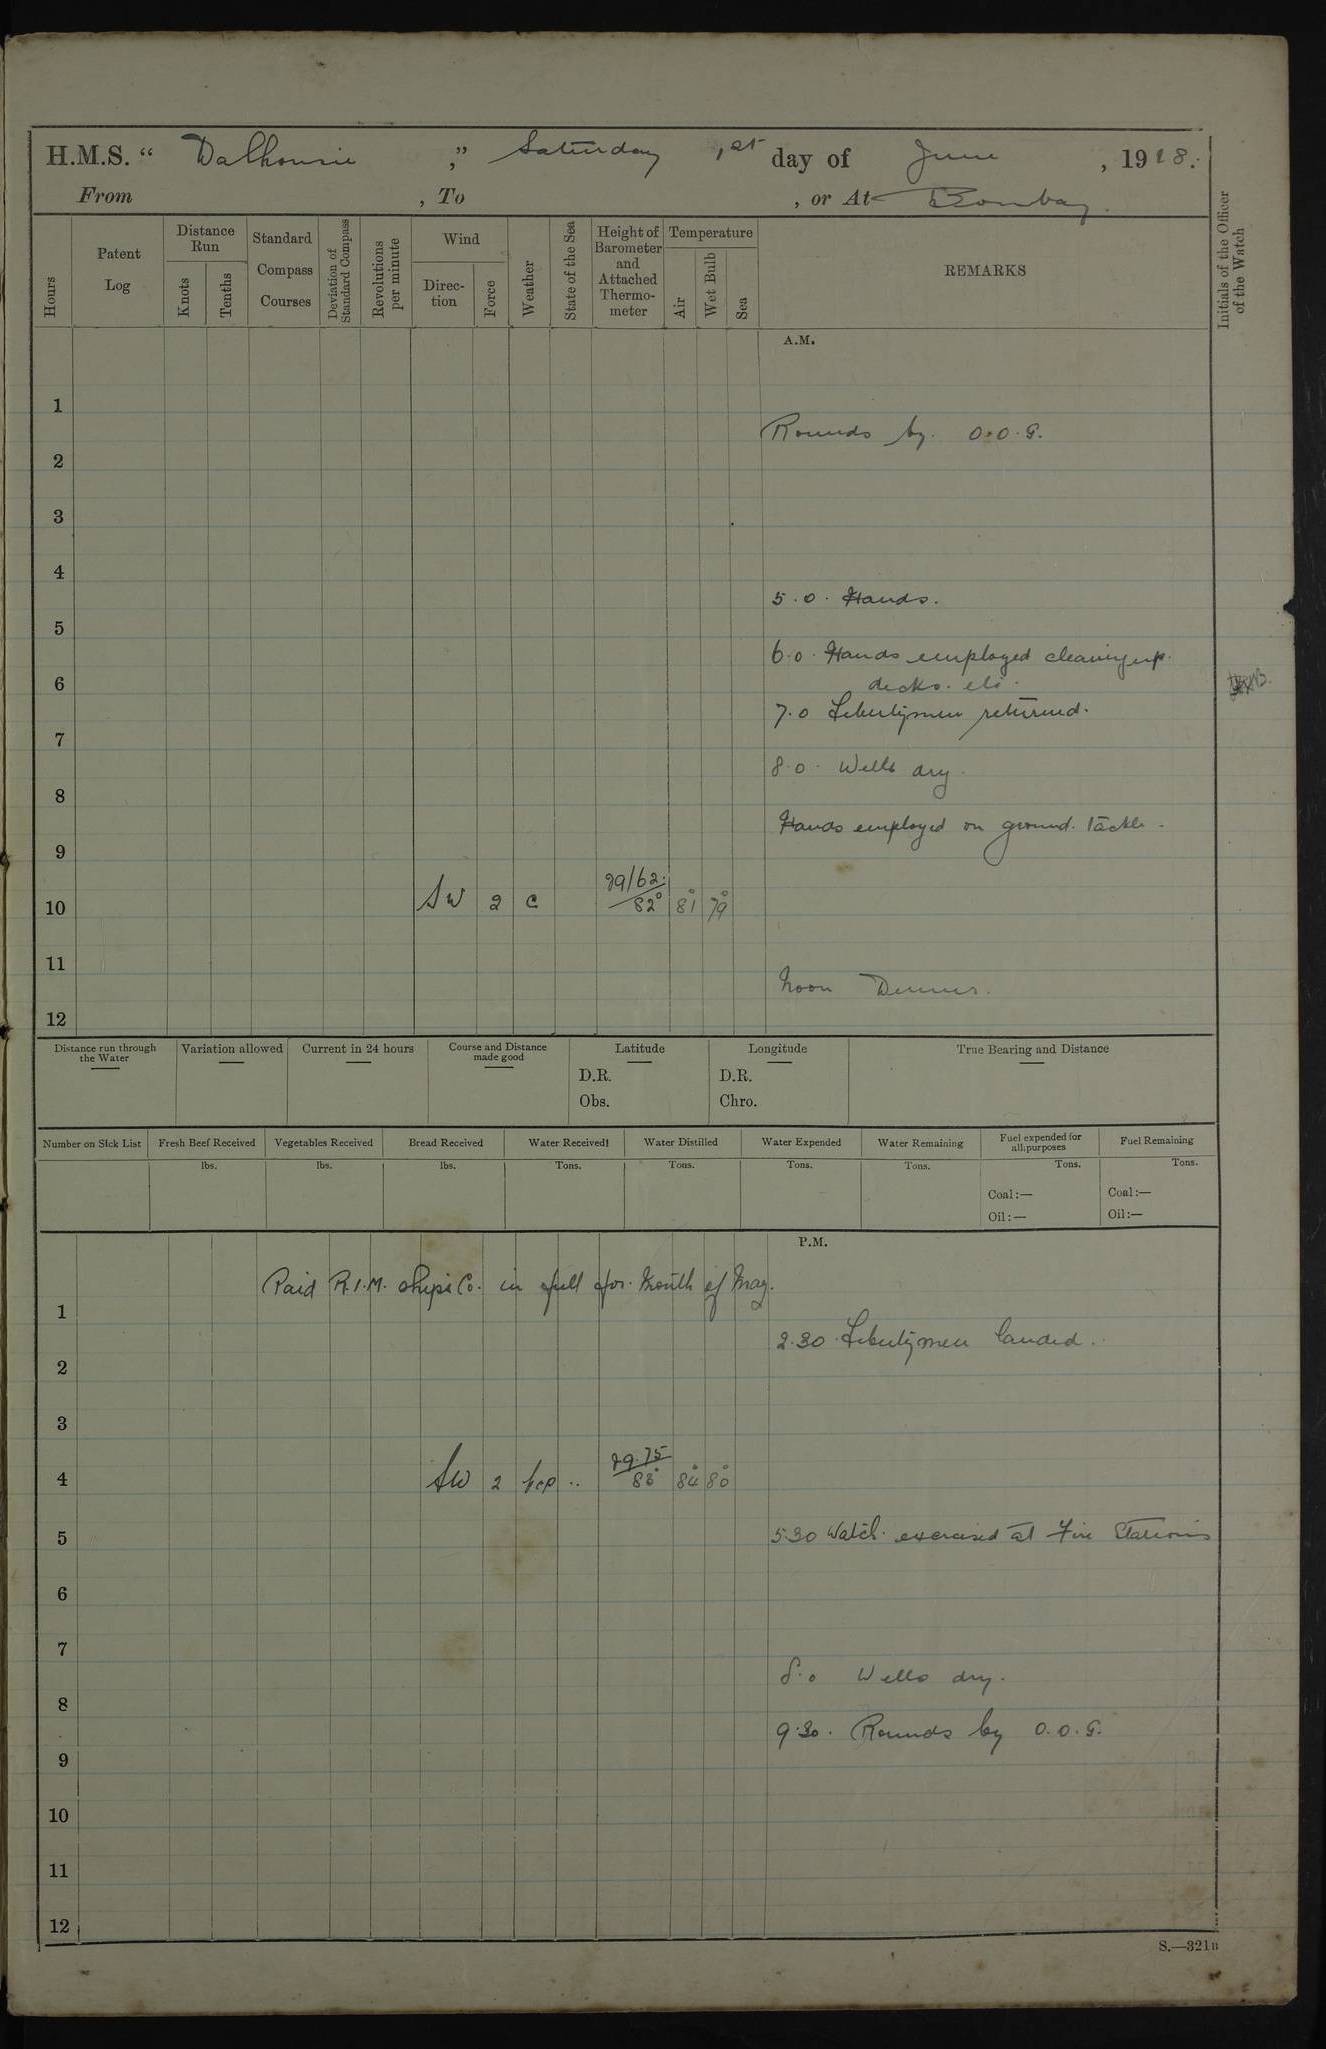 H.M.S. “ Dalhousie ,” Saturday 1st day of June , 1918.
From , To , or At Bombay.
Hours
Patent Log
Distance Run
Knots
Tenths
Standard Compass Courses
Deviation of Standard Compass
Revolutions per minute
Wind
Direc-tion
Force
Weather
State of the Sea
Height of Barometer and Attached Thermo-meter
Temperature
Air
Wet Bulb
Sea
REMARKS
Initials of the Officer of the Watch
A.M.
1
Rounds by. O.O.G.
2
3
4
5.0. Hands.
5
6.0. Hands employed cleaning up.
decks. etc.
6
7.0 Libertymen returned.
7
8.0. Wells dry.
8
Hands employed on ground. tackle.
9
10 SW 2 c 29/62. 82° 81° 79°
11
Noon Dinner.
12
Distance run through the Water
Variation allowed
Current in 24 hours
Course and Distance made good
Latitude
D.R.
Obs.
Longitude
D.R.
Chro.
True Bearing and Distance
Number on Sick List
Fresh Beef Received
lbs.
Vegetables Received
lbs.
Bread Received
lbs.
Water Received
Tons.
Water Distilled
Tons.
Water Expended
Tons.
Water Remaining
Tons.
Fuel expended for all purposes
Tons.
Coal:—
Oil:—
Fuel Remaining
Tons.
Coal:—
Oil:—
P.M.
Paid R.I.M. ships Co. in full for. Month of May.
1
2.30. Libertymen landed.
2
3
4 SW 2 bcp .. 29.75 83° 84° 80°
5.30 Watch. exercised at Fire Stations
5
6
7
8.0 Wells dry.
8
9.30. Rounds by O.O.G.
9
10
11
12
S.—321B